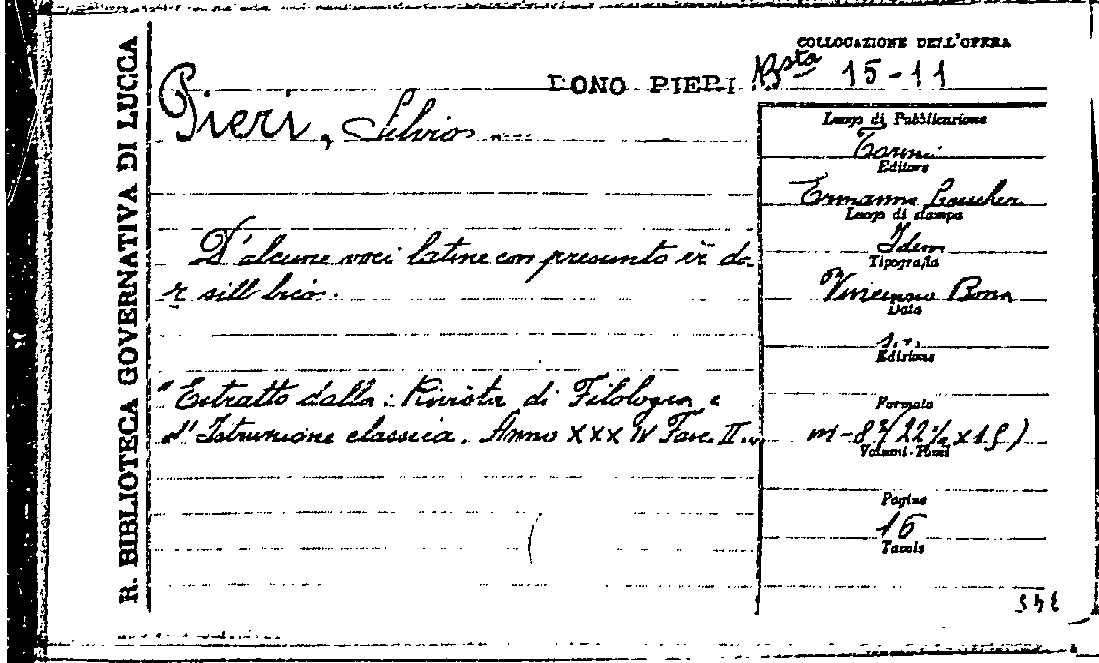 R. BIBLIOTECA GOVERNATIVA DI LUCCA
COLLOCAZIONE DELL'OPERA
DONO PIERI Bsta 15-11
Pieri, Silvio
D'alcune voci latine con presunto
Estratto dalla: Rivista di Filologia e
d'Istruzione classica. Anno XXXIV Fasc. II.
Luogo di Pubblicazione
Torino
Editore
Ermanno Loescher
Luogo di stampa
Idem
Tipografia
Vincenzo Bona
Data
Edizione
Formato
in-8º (22½ x 15)
Volumi-Pezzi
Pagine
16
Tavole